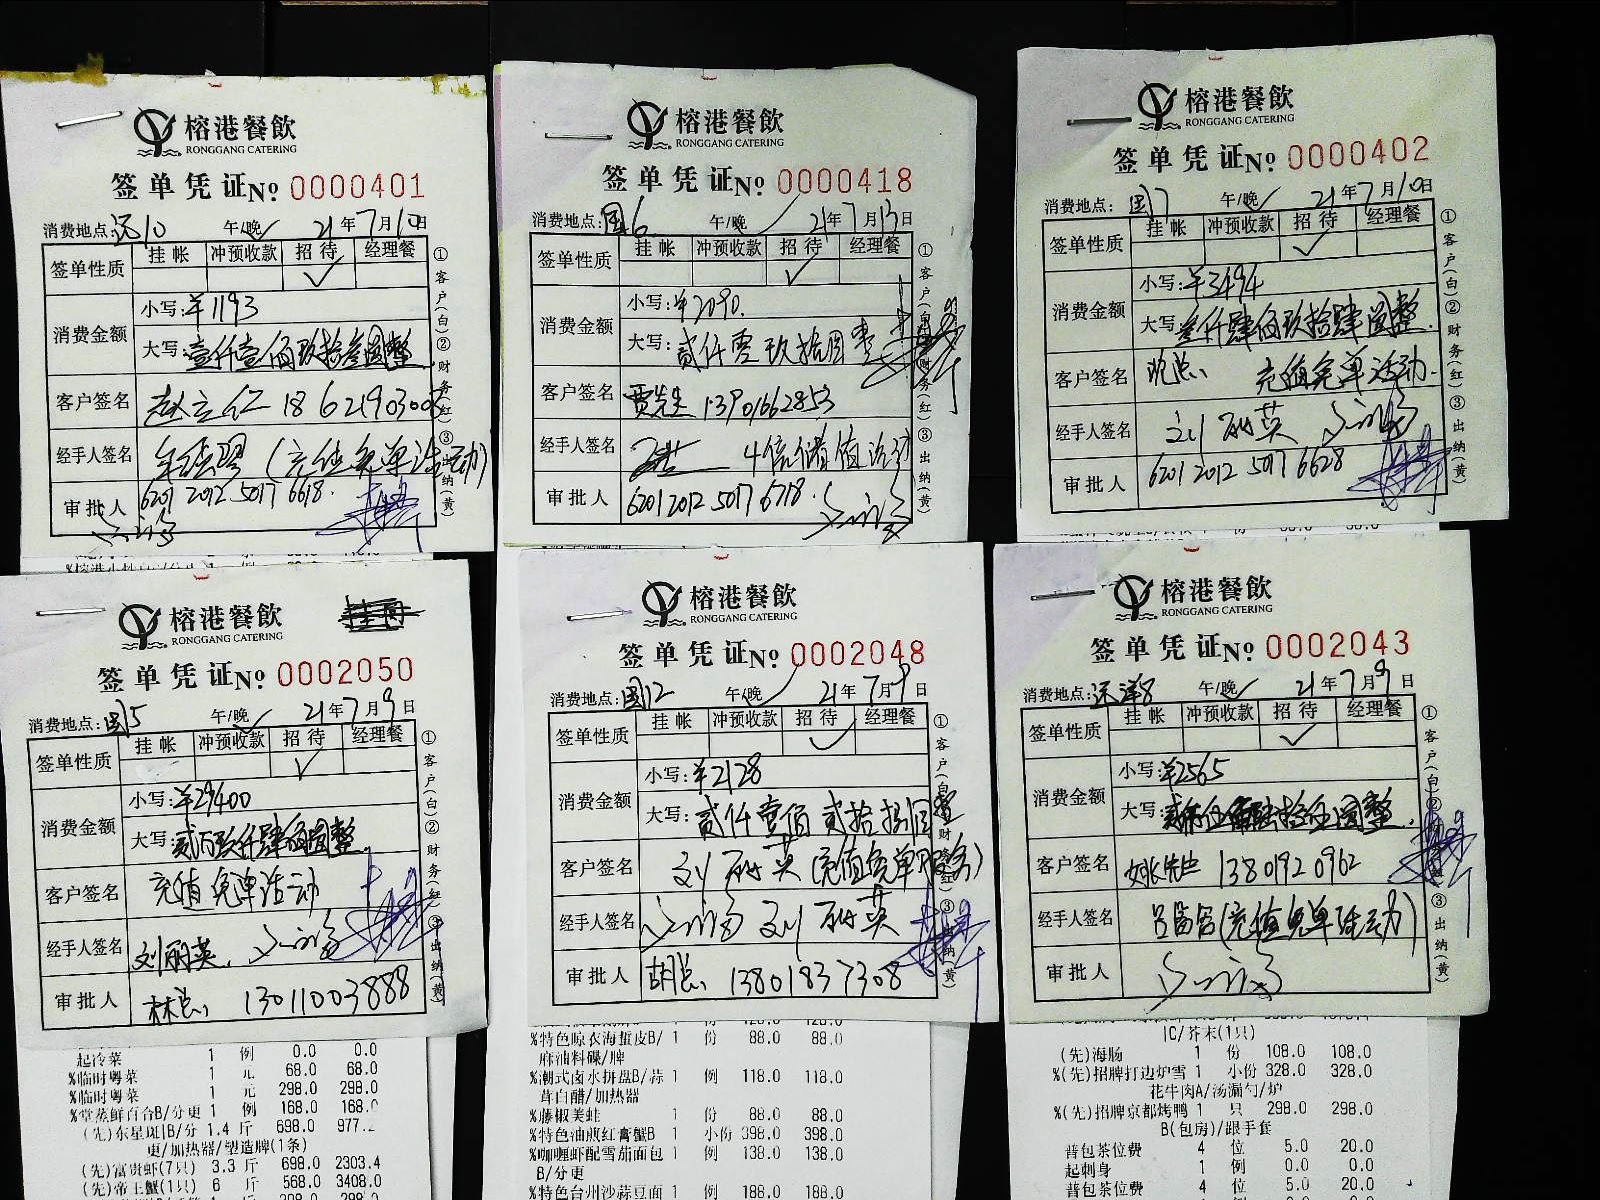 榕港餐飲
RONGGANG CATERING
签单凭证№ 0000401
消费地点:远10 午/晚 21年7月10日
签单性质 挂帐 冲预收款 招待 经理餐
消费金额 小写:¥1193
大写:壹仟壹佰玖拾叁圆整
客户签名 赵立仁
经手人签名 (充值免单活动)
审批人 6201 2012 5017 6618.
①客户(白)②财务(红)③出纳(黄)
榕港餐飲
RONGGANG CATERING
签单凭证№ 0000418
消费地点:国6 午/晚 21年7月13日
签单性质 挂帐 冲预收款 招待 经理餐
消费金额 小写:¥2090.
大写:贰仟零玖拾圆整
客户签名 贾先生 13901662853
经手人签名 4倍储值活动
审批人 6201 2012 5017 6718.
①客户(白)②财务(红)③出纳(黄)
榕港餐飲
RONGGANG CATERING
签单凭证№ 0000402
消费地点:国7 午/晚 21年7月10日
签单性质 挂帐 冲预收款 招待 经理餐
消费金额 小写:¥3494
大写:叁仟肆佰玖拾肆圆整.
客户签名 充值免单活动.
经手人签名 刘丽英
审批人 6201 2012 5017 6628
①客户(白)②财务(红)③出纳(黄)
榕港餐飲
RONGGANG CATERING
签单凭证№ 0002050
消费地点:国5 午/晚 21年7月9日
签单性质 挂帐 冲预收款 招待 经理餐
消费金额 小写:¥29400
大写:贰万玖仟肆佰圆整.
客户签名 充值免单活动
经手人签名 刘丽英.
审批人 林总, 13011003888
①客户(白)②财务(红)③出纳(黄)
起冷菜 1 例 0.0 0.0
%临时粤菜 1 元 68.0 68.0
%临时粤菜 1 元 298.0 298.0
%堂蒸鲜百合B/分更 1 例 168.0 168.0
(先)东星斑IB/分 1.4 斤 698.0 977.
更/加热器/塑造牌(1条)
(先)富贵虾(7只) 3.3 斤 698.0 2303.4
(先)帝王蟹(1只) 6 斤 568.0 3408.0
榕港餐飲
RONGGANG CATERING
签单凭证№ 0002048
消费地点:国12 午/晚 21年7月9日
签单性质 挂帐 冲预收款 招待 经理餐
消费金额 小写:¥2128
大写:贰仟壹佰贰拾捌圆整
客户签名 刘丽英(充值免单服务)
经手人签名 刘丽英
审批人 胡总, 13801837308
①客户(白)②财务(红)③出纳(黄)
%特色晾衣海蜇皮B/ 1 份 88.0 88.0
麻油料碟/牌
%潮式卤水拼盘B/蒜 1 例 118.0 118.0
茸白醋/加热器
%藤椒美蛙 1 份 88.0 88.0
%特色油煎红膏蟹B 1 小份 398.0 398.0
%咖喱虾配雪茄面包 1 例 138.0 138.0
B/分更
%特色台州沙蒜豆面 1 例 188.0 188.0
榕港餐飲
RONGGANG CATERING
签单凭证№ 0002043
消费地点:远洋8 午/晚 21年7月9日
签单性质 挂帐 冲预收款 招待 经理餐
消费金额 小写:¥2565
大写:贰仟伍佰陆拾伍圆整.
客户签名 姚先生 13801920962
经手人签名 (充值免单活动)
审批人
①客户(白)②财务(红)③出纳(黄)
IC/芥末(1只)
(先)海肠 1 份 108.0 108.0
%(先)招牌打边炉雪 1 小份 328.0 328.0
花牛肉A/汤漏勺/炉
%(先)招牌京都烤鸭 1 只 298.0 298.0
B(包房)/跟手套
普包茶位费 4 位 5.0 20.0
起刺身 1 例 0.0 0.0
普包茶位费 4 位 5.0 20.0